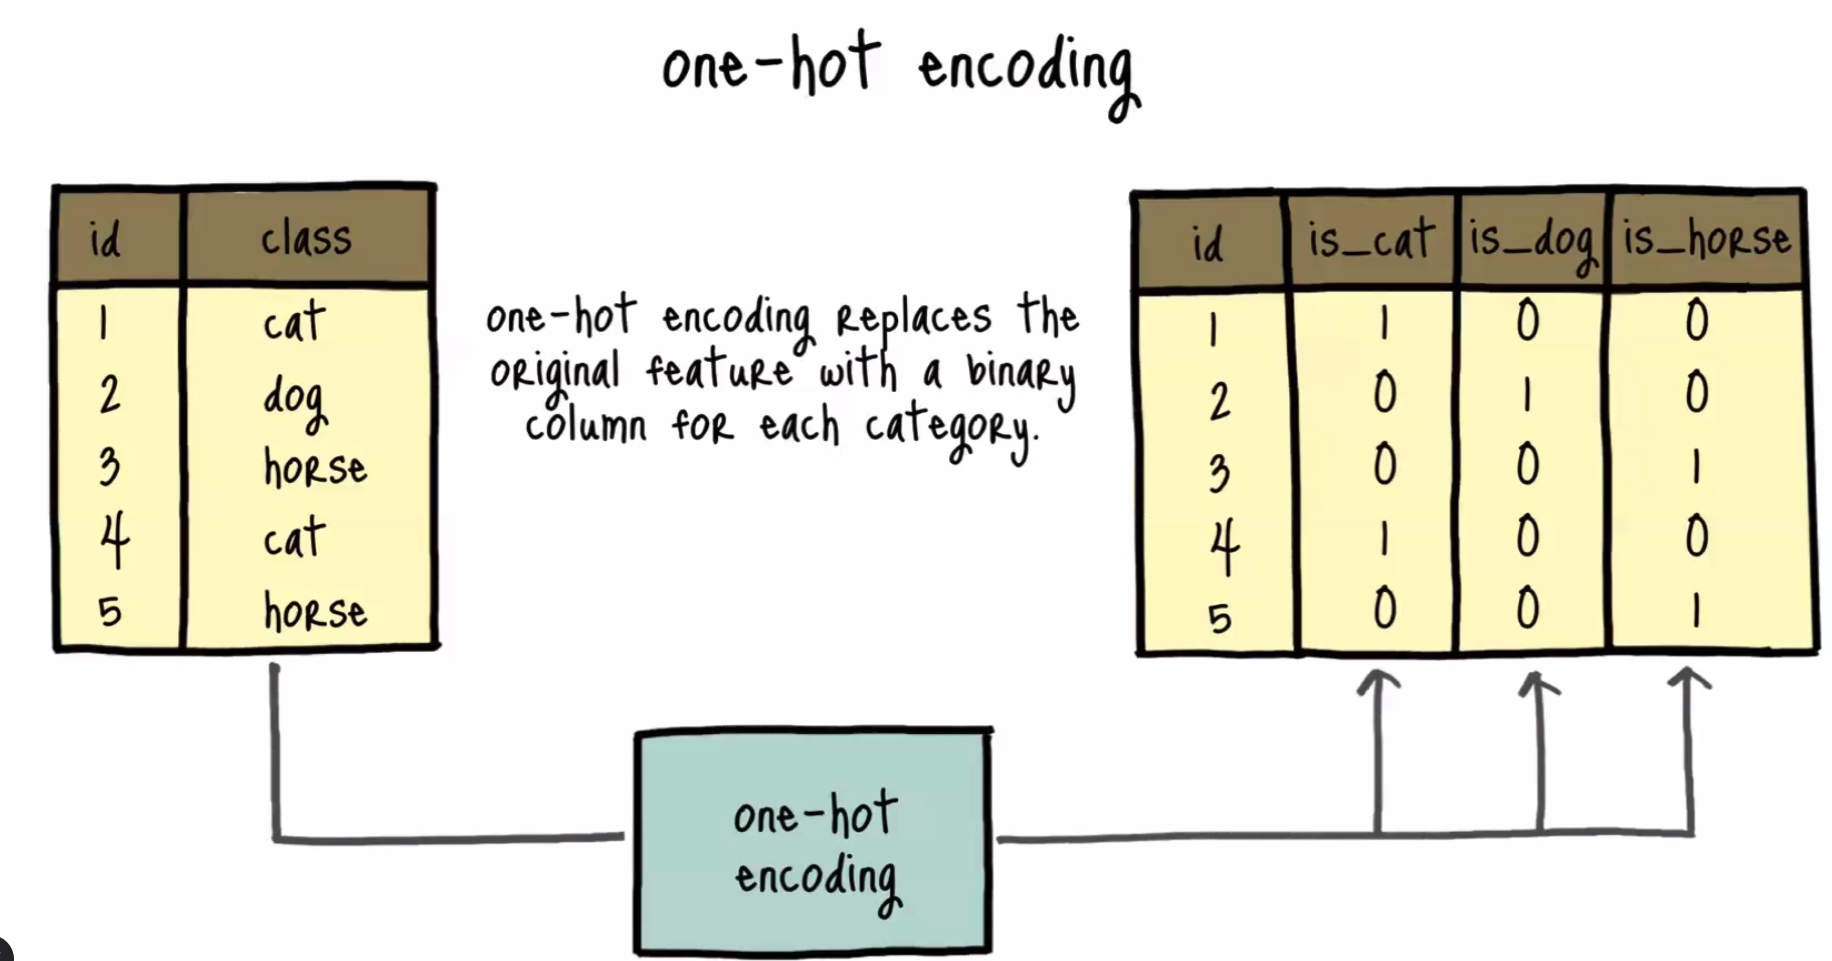 one-hot encoding
id class
1 cat
2 dog
3 horse
4 cat
5 horse
one-hot encoding replaces the
original feature with a binary
column for each category.
id is_cat is_dog is_horse
1 1 0 0
2 0 1 0
3 0 0 1
4 1 0 0
5 0 0 1
one-hot
encoding